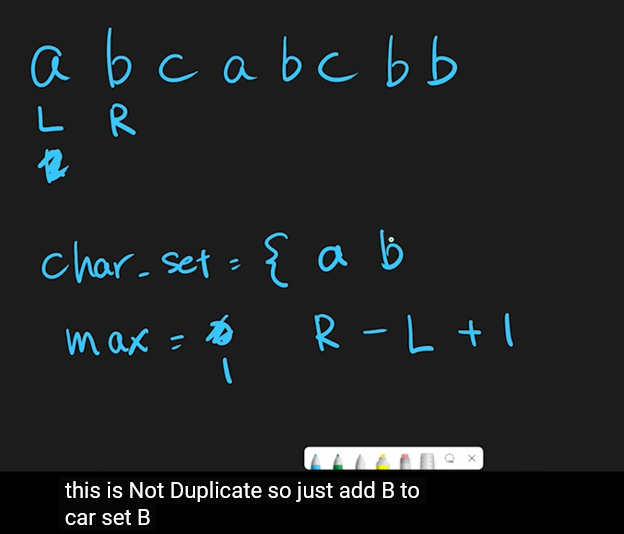 a b c a b c b b
L R
char_set = { a b
max =
1
R - L + 1
this is Not Duplicate so just add B to
car set B